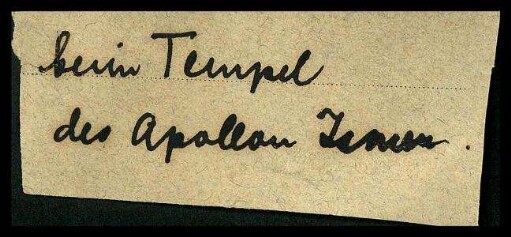 beim Tempel
des Apollon